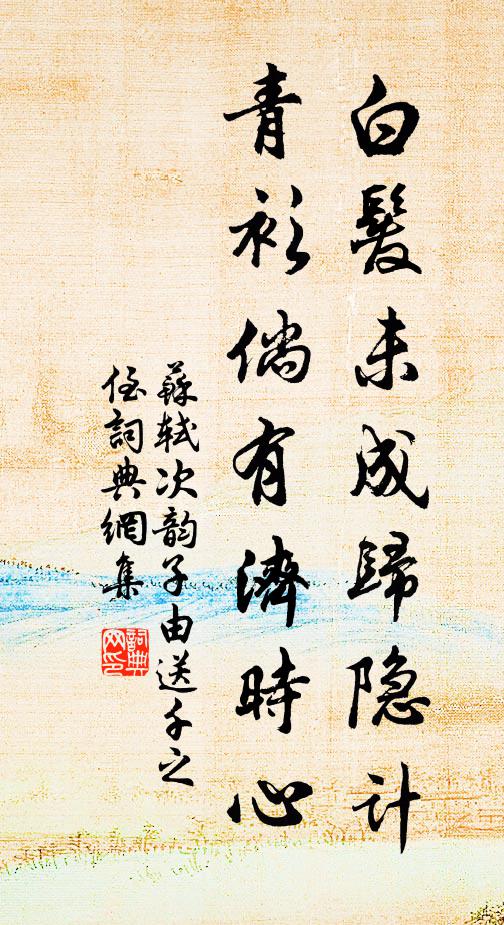 白髮未成歸隐計
青衫倘有濟時心
蘇軾次韵子由送千之
侄詞典網集
詞典
网印